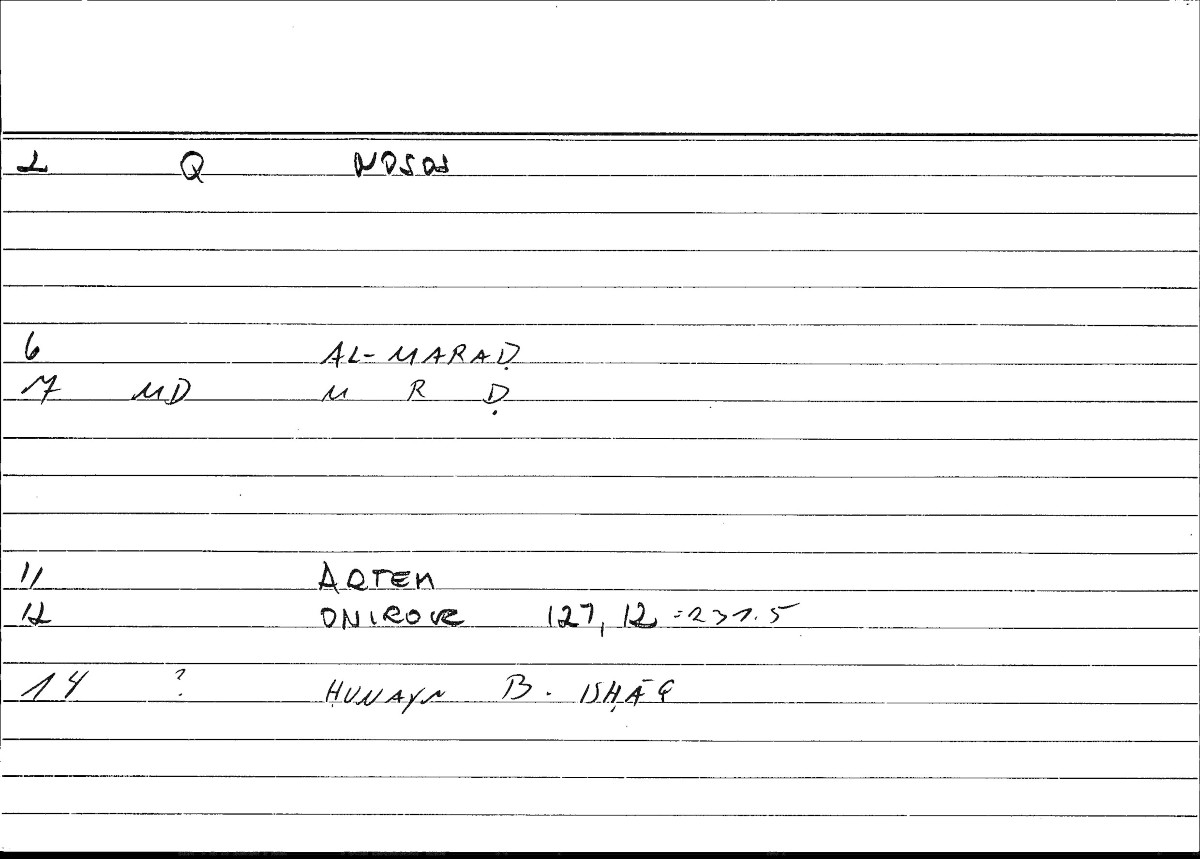 2 Q NOSOS
6 AL-MARAḌ
7 MD M R Ḍ
11 ARTEM
12 ONIROCR 127, 12 = 231.5
14 ? ḤUNAYN B. ISḤĀQ